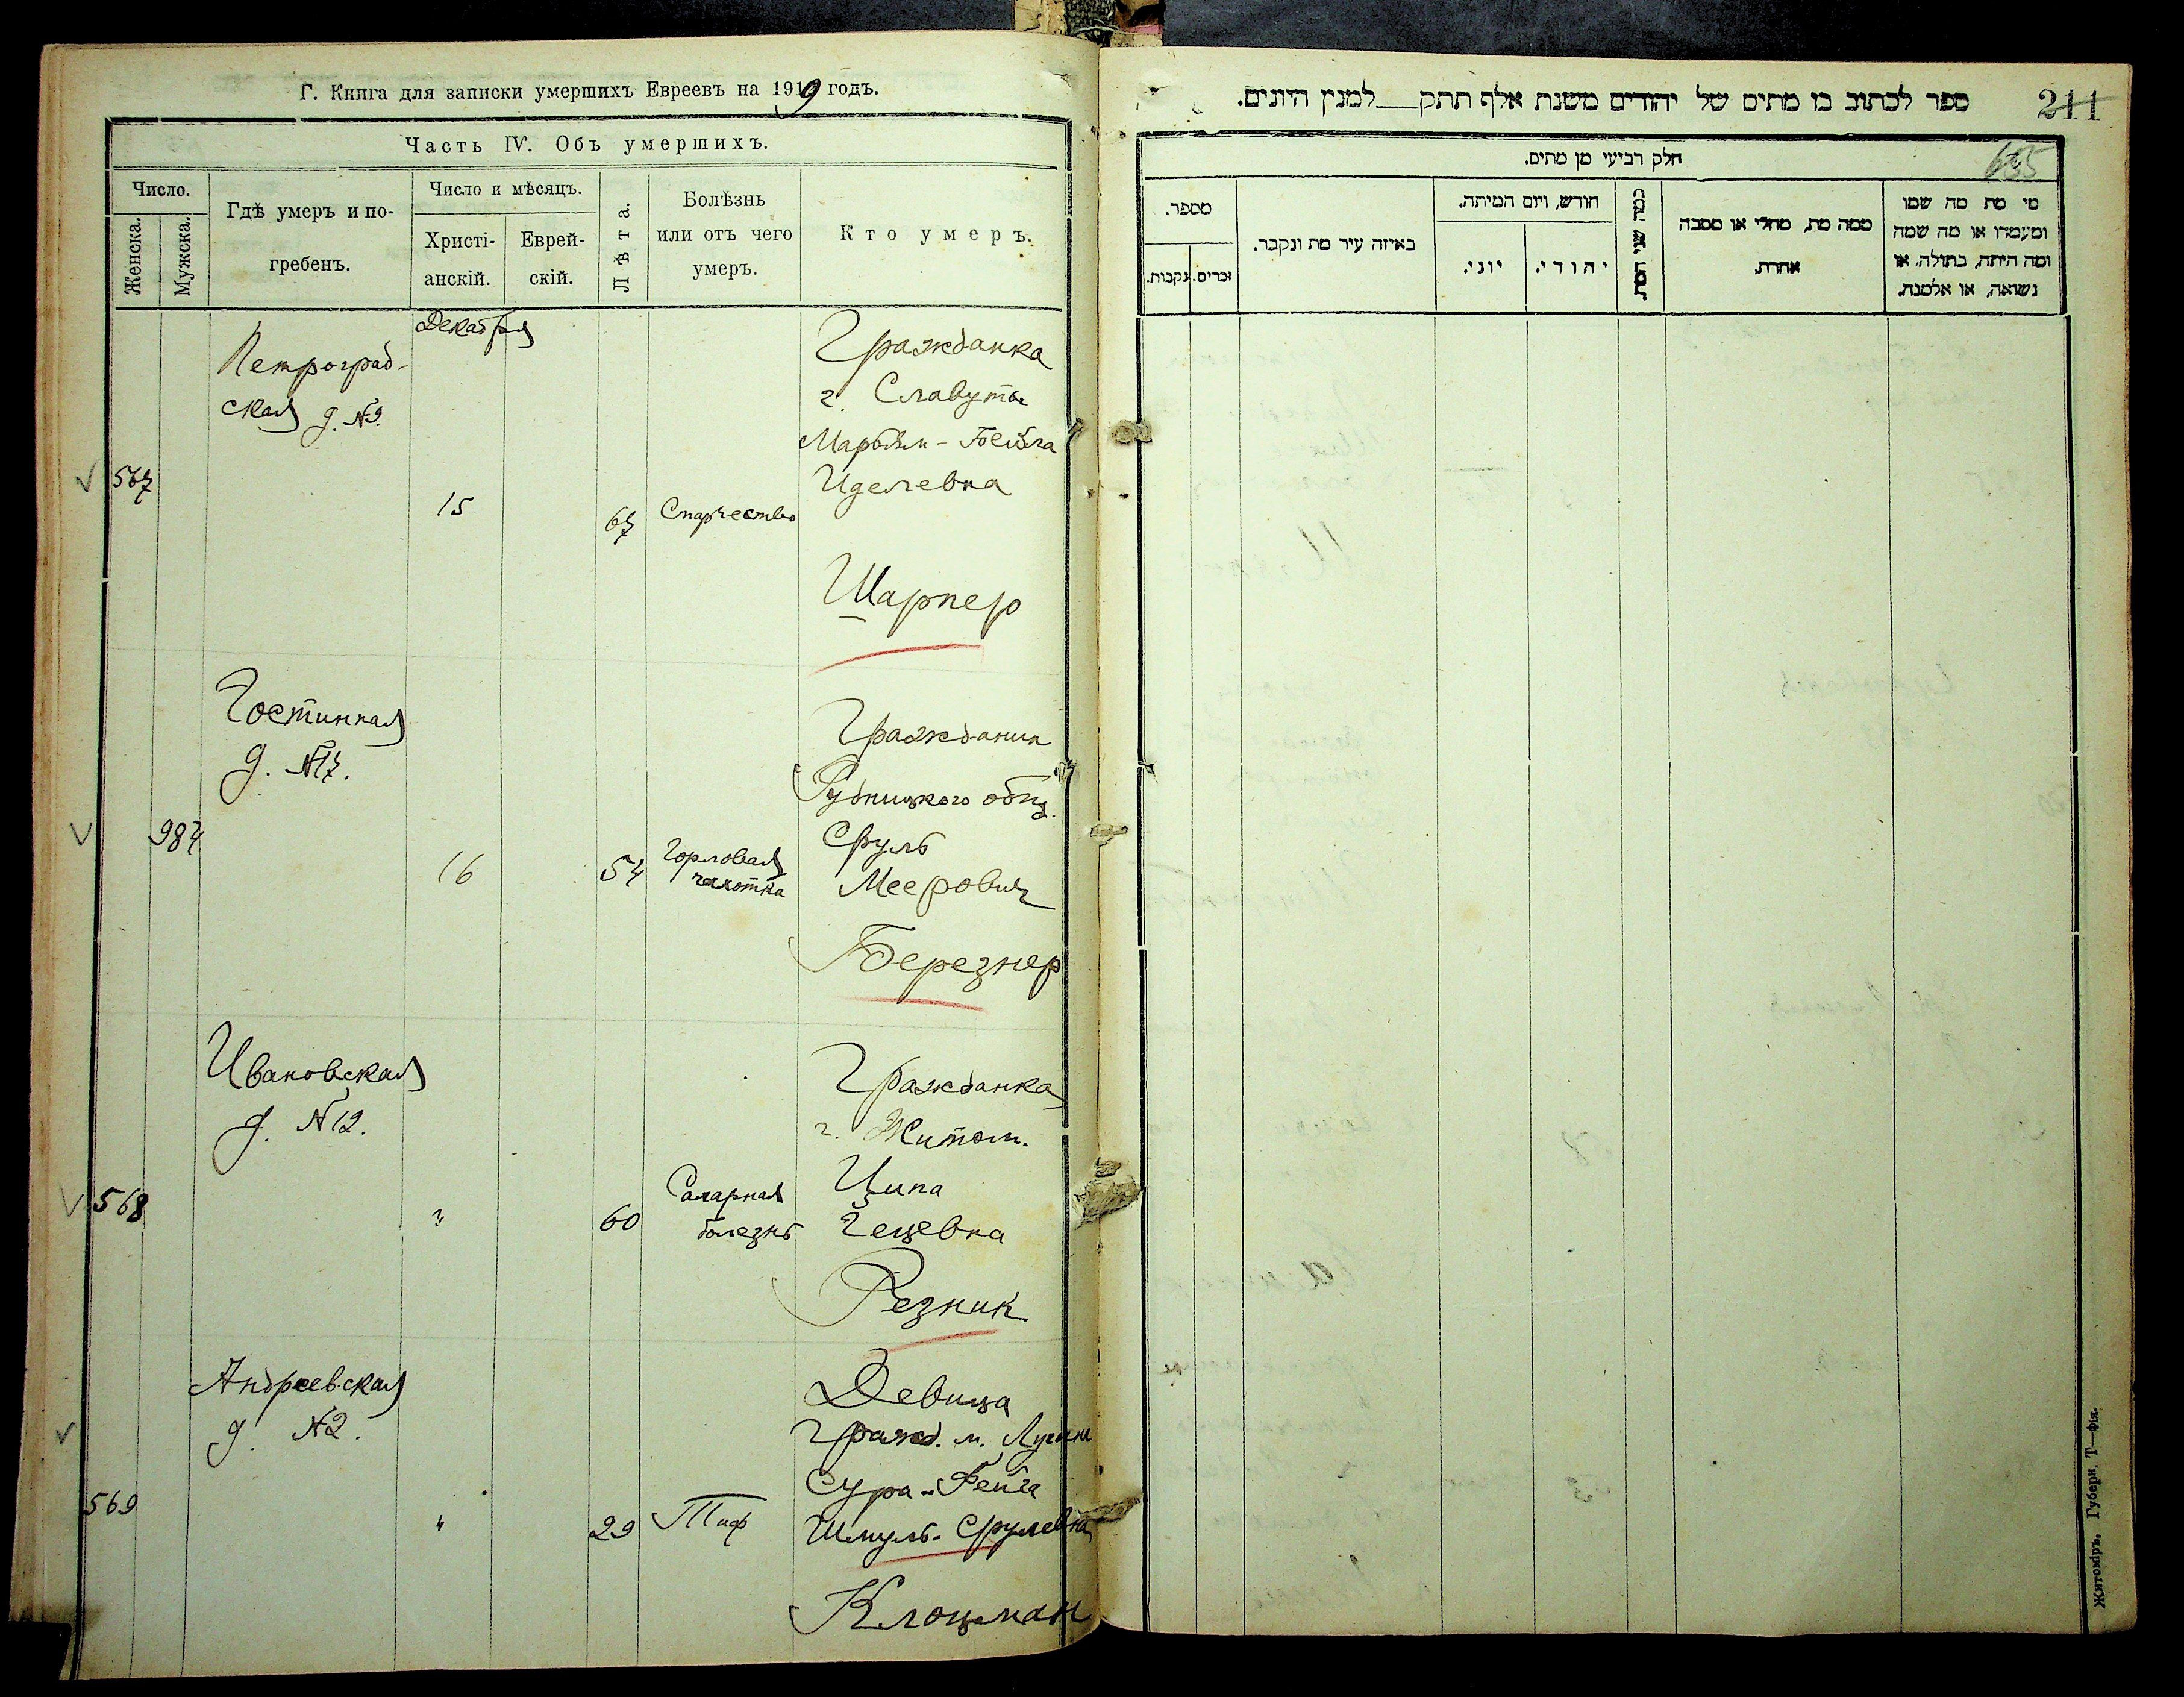 Г. Книга для записки умершихъ Евреевъ на 1919 годъ.
Часть IV. Объ умершихъ.
Число.
Женска.
Мужска.
Гдѣ умеръ и по-
гребенъ.
Число и мѣсяцъ.
Христі-
анскій.
Еврей-
скій.
Лѣта.
Болѣзнь
или отъ чего
умеръ.
Кто умеръ.
Декабря
567
Петроград-
ская д. №9.
15
67
Старчество
Гражданка
г. Славуты
Марьям-Бейла
Иделевна
Шарпер
984
Гостинная
д. №17.
16
54
Горловая
чахотка
Гражданин
Рудницкого общ.
Сруль
Меерович
Березнер
568
Ивановская
д. №12.
"
60
Сахарная
болезнь
Гражданка
г. Житом.
Ципа
Резник
569
Андреевская
д. №2.
"
29
Тиф
Девица
Гражд. м. Лугина
Сура-Фейга
Шмуль-Срулевна
Клоцман
ספר לכתוב בו מתים של יהודים משנת אלף תתק למנין היונים.
211
635
חלק רביעי מן מתים.
מספר.
נקבות.
זכרים.
באיזה עיר מת ונקבר.
חודש, ויום המיתה.
יוני.
יהודי.
כמה שני המת.
ממה מת, מחלי או מסבה
אחרת.
מי מת מה שמו
ומעמדו או מה שמה
ומה היתה, בתולה, או
נשואה, או אלמנה.
Житоміръ, Губерн. Т—фія.